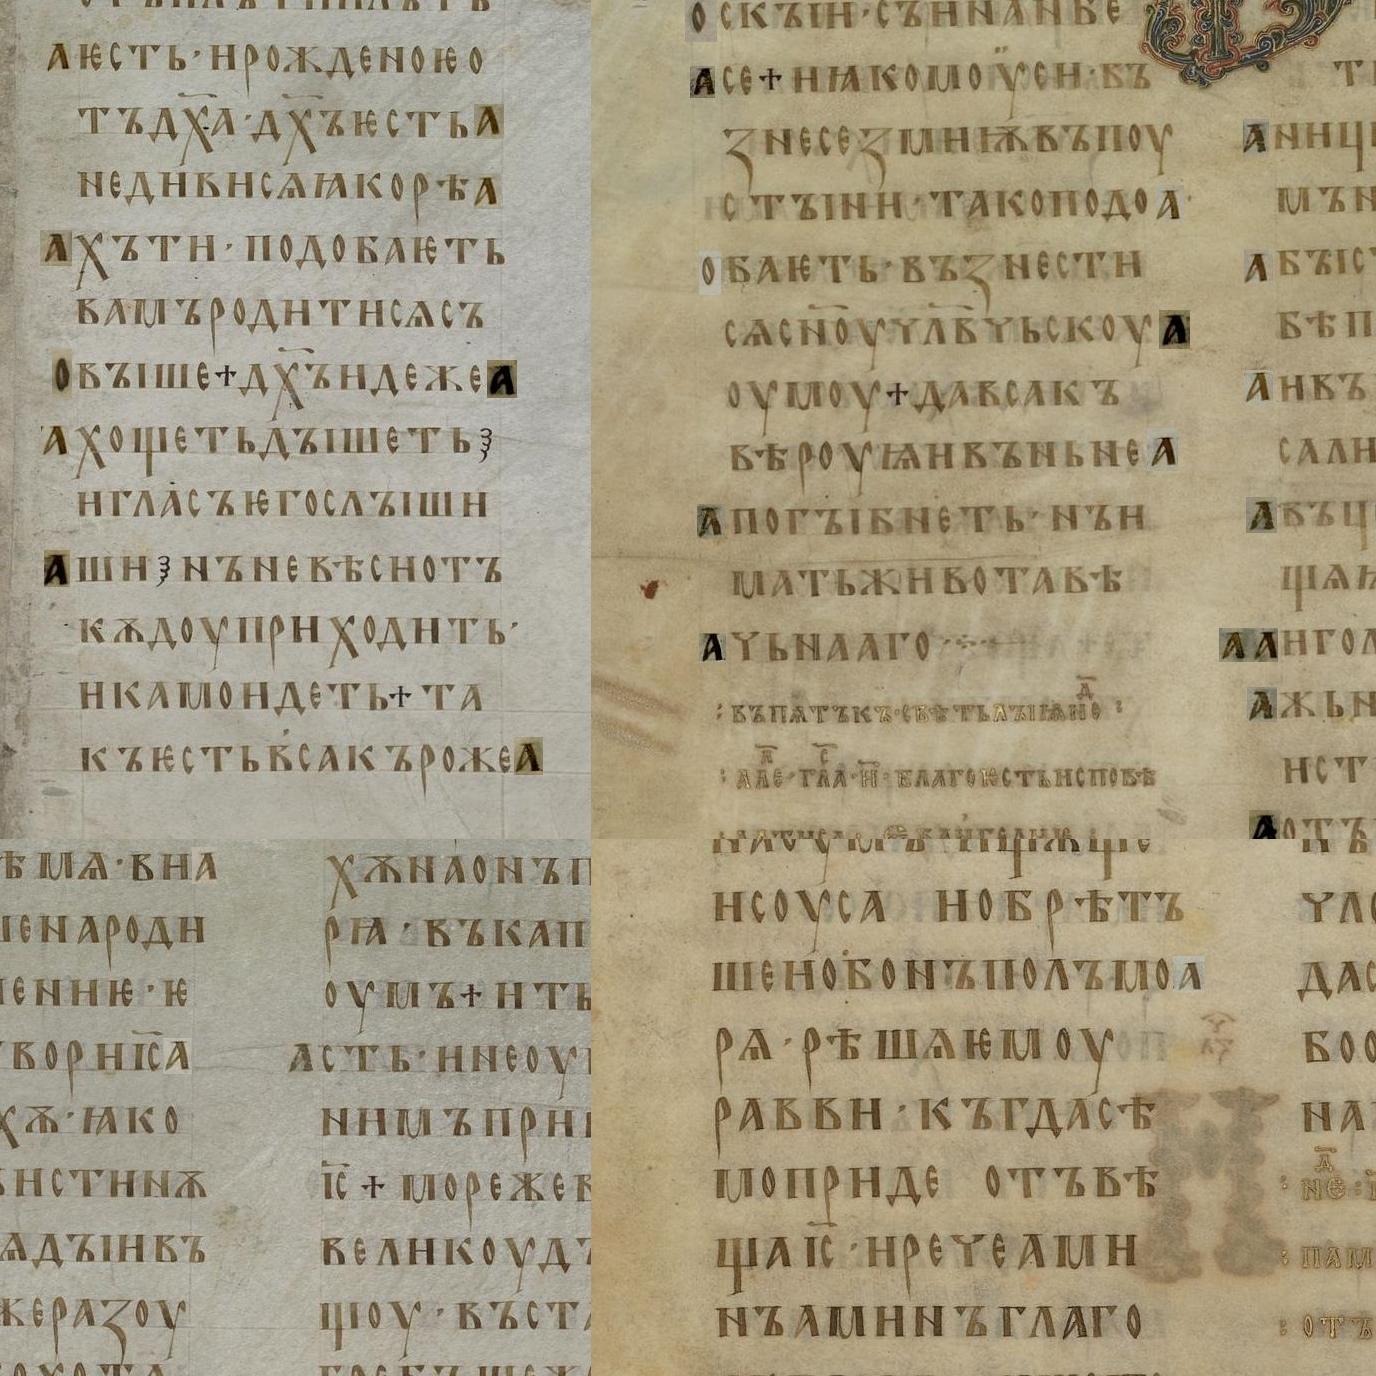 АѤСТЬ·НРОЖДЕНОѤО
ТЪДХ҃А·ДХ҃ЪѤСТЬА
НЕДИВИСѦꙖКОРѢА
АХЪТИ·ПОДОБАѤТЬ
ВАМЪРОДИТИСѦСЪ
ОВЪІШЕ+ДХ҃ЪИДЕЖЕА
АХОЩЕТЬДЪІШЕТЬꙁ
ИГЛАСЪѤГОСЛЪІШИ
АШИꙁНЪНЕВѢСИОТЪ
КѪДОУПРИХОДИТЬ·
ИКАМОИДЕТЬ+ТА
КЪѤСТЬВСАКЪРОЖЕА
ОСКЪІИ·СЪИИАНБЕ
АСЕ+ИꙖКОМОѴСИ·ВЪ
ꙀНЕСЕꙀМИѬВЪПОУ
СТЪІНИ·ТАКОПОДОА·
ОБАѤТЬ·ВЪꙀНЕСТИ
СѦСН҃ОУҮЛ҃ВҮЬСКОУА
ОУМОУ+ДАВСАКЪ
ВѢРОУѬИВЪНЬНЕА
АПОГЪІБНЕТЬ·НЪИ
МАТЬЖИВОТАВѢ
АҮЬНААГО
:ВЪПѦТЪКЪ·СВѢТЬЛЪІѨНЕ:
:АЛЕ·ГЛА·И҃·БЛАГОѤСТЬИСПОВѢ
Т
АНИЦ
МЪН
АБЪІС
БѢП
АИВЪ
САЛИ
АВЪЦ
ЩѦ
ААНГОЛ
АЖЬН
ИСТ
АОТЪ
ѢМѦ·ВНА
ІЕНАРОДИ
ІЕНИѤ·Ѥ
ТВОРИІ҃СА
ХѪ·ꙖКО
ЬИСТИНѪ
ѦДЪІИВЪ
ЖЕРАꙀОУ
ХѪНАОНЪП
РІА·ВЪКАП
ОУМЪ+ИТЬ
АСТЬ·ИНЕОУ
НИМЪПРИ
ІС҃+МОРЕЖЕВ
ВЕЛИКОУДЪ
ЩЮУ·ВЪСТА
ИСОУСА ИОБРѢТЪ
ШЕИОБОНЪПОЛЪМОА
РѦ·РѢШѦѤМОУ
РАВВИ·КЪГДАСѢ
МОПРИДЕ ОТЪВѢ
ЩАІС҃·ИРЕҮЕАМИ
НЪАМИНЪГЛАГО
ҮЛО
ДАС
БОО
НА
:НЕ:
:ПАМ
:ОТЪ